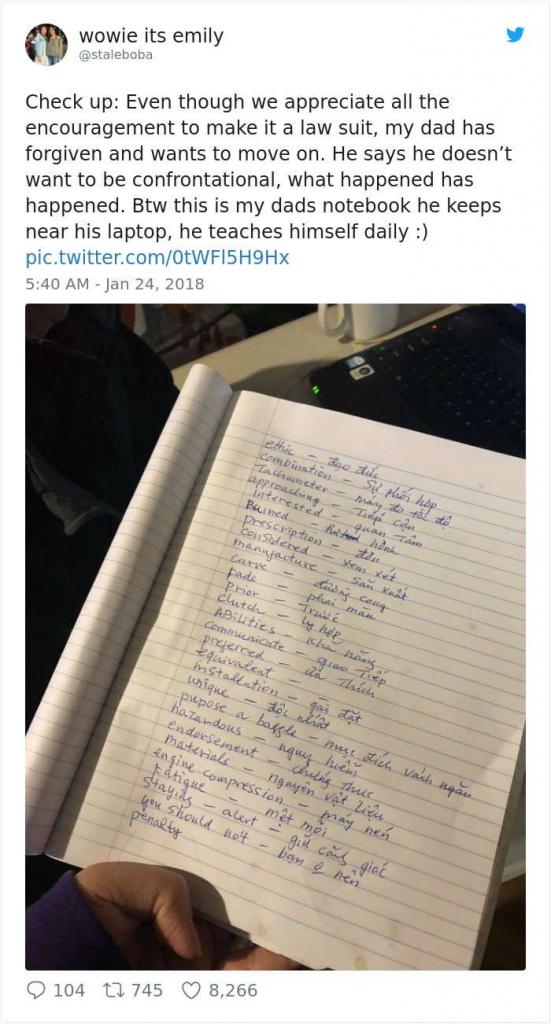 wowie its emily
@staleboba
Check up: Even though we appreciate all the
encouragement to make it a law suit, my dad has
forgiven and wants to move on. He says he doesn’t
want to be confrontational, what happened has
happened. Btw this is my dads notebook he keeps
near his laptop, he teaches himself daily :)
pic.twitter.com/0tWFl5H9Hx
5:40 AM - Jan 24, 2018
ethic – đạo đức
combination – Sự phối hợp
Tachometer – máy đo tốc độ
approaching – Tiếp cận
Interested – quan Tâm
prescription – đơn
considered – xem xét
manufacture – sản xuất
curve – đường cong
Fade – phai
Prior – Trước
clutch – ly hợp
ABilities – khả năng
communicate – giao Tiếp
preferred – ưa Thích
equivalent –
installation – gài đặt
unique – độc nhất
pupose a baffle – mục đích vách ngăn
hazardous – nguy hiểm
endorsement – chứng Thực
materials – nguyên vật liệu
engine compression – máy nén
Fatigue – mệt mỏi
staying – alert – giữ giác
you should not – bạn o nên
penalty
104 745 8,266